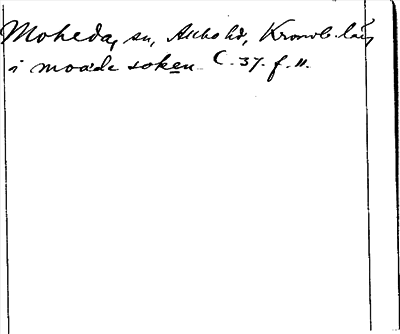 Moheda, sn, Allbo hd, Kronob. län
i moæde soken C. 37. f. 11.